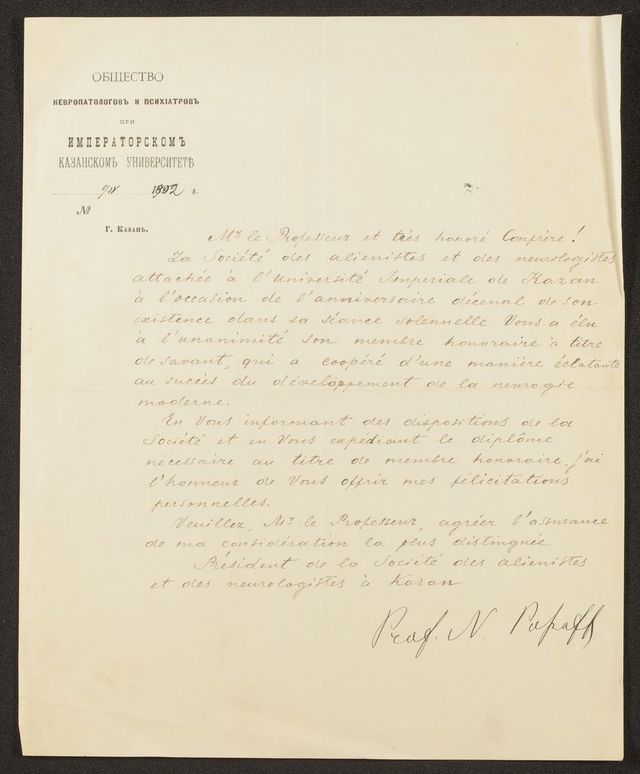 ОБЩЕСТВО
НЕВРОПАТОЛОГОВЪ И ПСИХІАТРОВЪ
ПРИ
ИМПЕРАТОРСКОМЪ
КАЗАНСКОМЪ УНИВЕРСИТЕТѢ
г.
№
Г. Казань.
Mr le Professeur et très honoré Confrère!
La Société des alienistes et des neurologistes
attachée à l'Université Imperiale de Kazan
à l'occasion de l'anniversaire décenal de son
existence dans sa séance solennelle Vous a élu
à l'unanimité son membre honoraire à titre
de savant, qui a coopéré d'une manière éclatante
au succès du développement de la neurogie
moderne.
En Vous informant des dispositions de la
Société et en Vous expédiant le diplôme
nécessaire au titre de membre honoraire j'ai
l'honneur de Vous offrir mes félicitations
personnelles.
Veuillez, Mr le Professeur, agréer l'assurance
de ma considération la plus distinguée
Président de la Société des alienistes
et des neurologistes à Kazan
Prof. N. Popoff